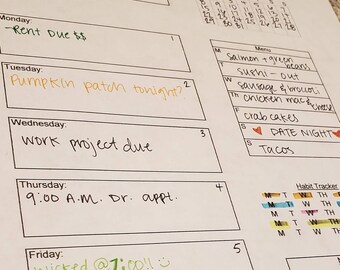 Monday: 1
-Rent Due $$
Tuesday: 2
Pumpkin patch tonight?
Wednesday: 3
Work project due
Thursday: 4
9:00 A.M. Dr. appt.
Friday: 5
Wicked @ 7:00!!
Menu
M Salmon + green beans
T Sushi - out
W Sausage & broccoli
Th Chicken mac & cheese
F Crab cakes
S ♥ DATE NIGHT ♥
S Tacos
Habit Tracker
M T W TH F
M T W TH
M T W TH
M T W TH
M T W